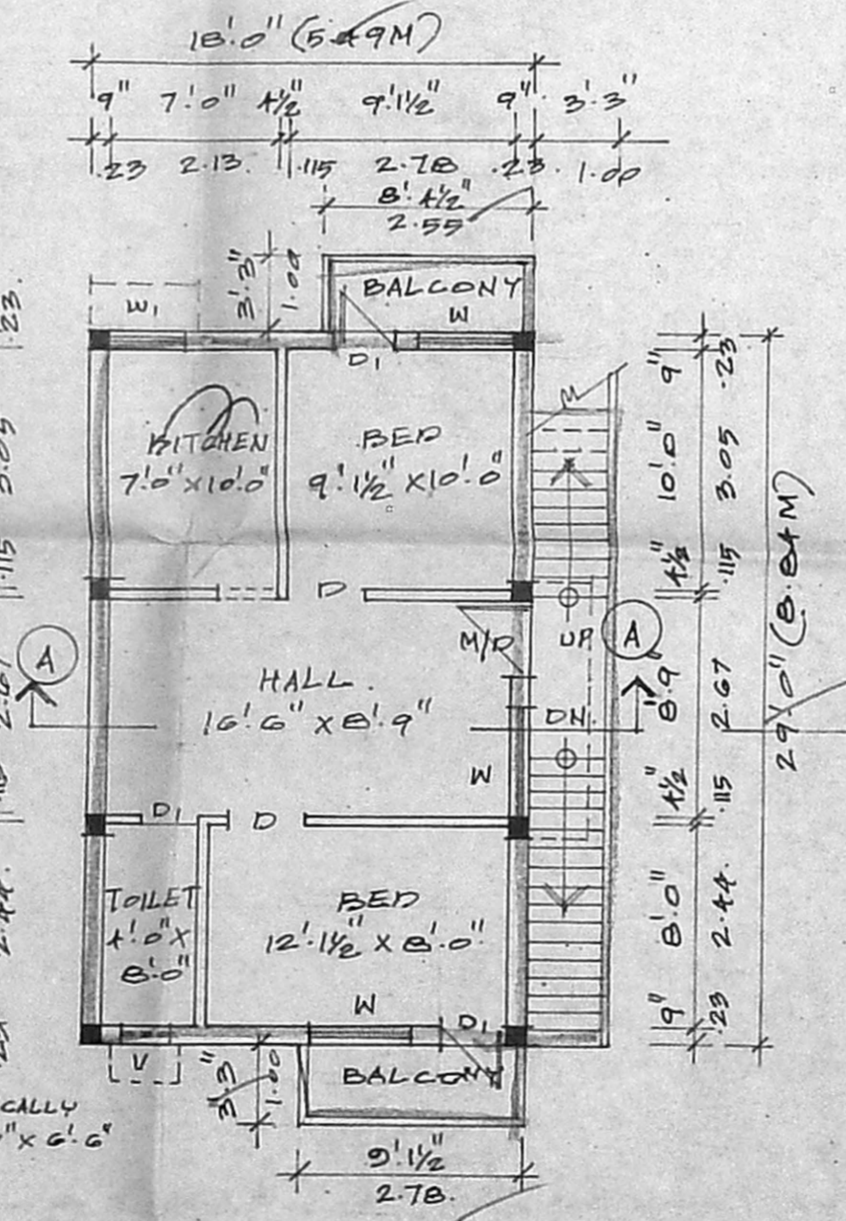 18'.0" (5.49M)
9" 7'.0" 4½" 9'.1½" 9" 3'.3"
.23 2.13. .115 2.78 .23 1.00
8'.4½"
2.55
3'.3"
1.00
BALCONY
W1
W
D1
KITCHEN
7'.0" X 10'.0"
BED
9'.1½" X 10'.0"
D
M/D
UP
A
A
HALL.
16'.6" X 8'.9"
DN.
W
D1
D
TOILET
4'.0" X
8'.0"
BED
12'.1½" X 8'.0"
W
D1
V
BALCONY
3'.3"
1.00
9'.1½"
2.78.
9"
.23
10'.0"
3.05
4½"
.115
8'.9"
2.67
4½"
.115
8'.0"
2.44.
9"
.23
29'.0" (8.84M)
.23.
3.05
.115
2.67
2.44.
CALLY
" X 6'.6"